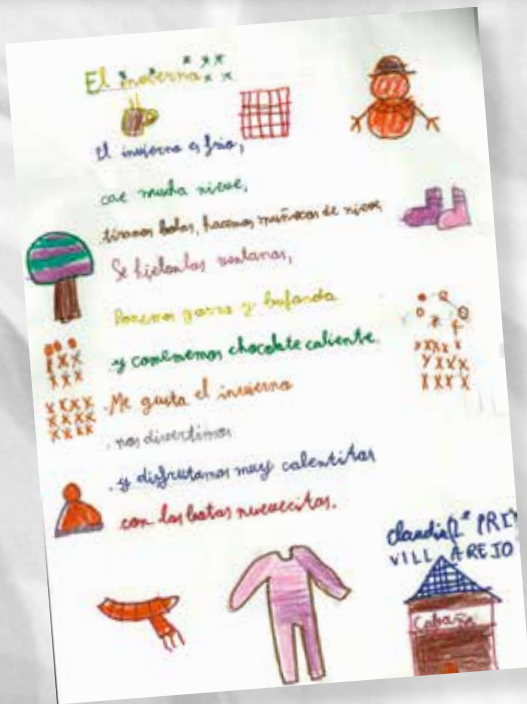 El invierno
El invierno es frio,
cae mucha nieve,
tiramos bolas, hacemos muñecos de nieve
Se hielan las ventanas,
Ponemos gorro y bufanda
y comemos chocolate caliente.
Me gusta el invierno
nos divertimos
y disfrutamos muy calentitas
con las botas nuevecitas.
Claudia 2º PRI
VILLAREJO
Cabaña